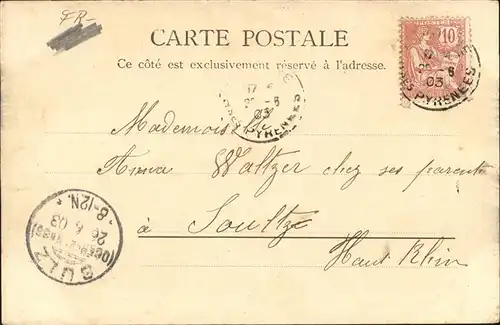 FR-
CARTE POSTALE
Ce côté est exclusivement réservé à l'adresse.
POSTES
10
17
29 - 6
03
PYRENEES
17
29 - 6
03
PYRENEES
Mademoiselle
Anna Waltzer chez ses parents
à Soultz
Haut Rhin
SULZ
(OBERELSASS)
26 6 03
8-12N.